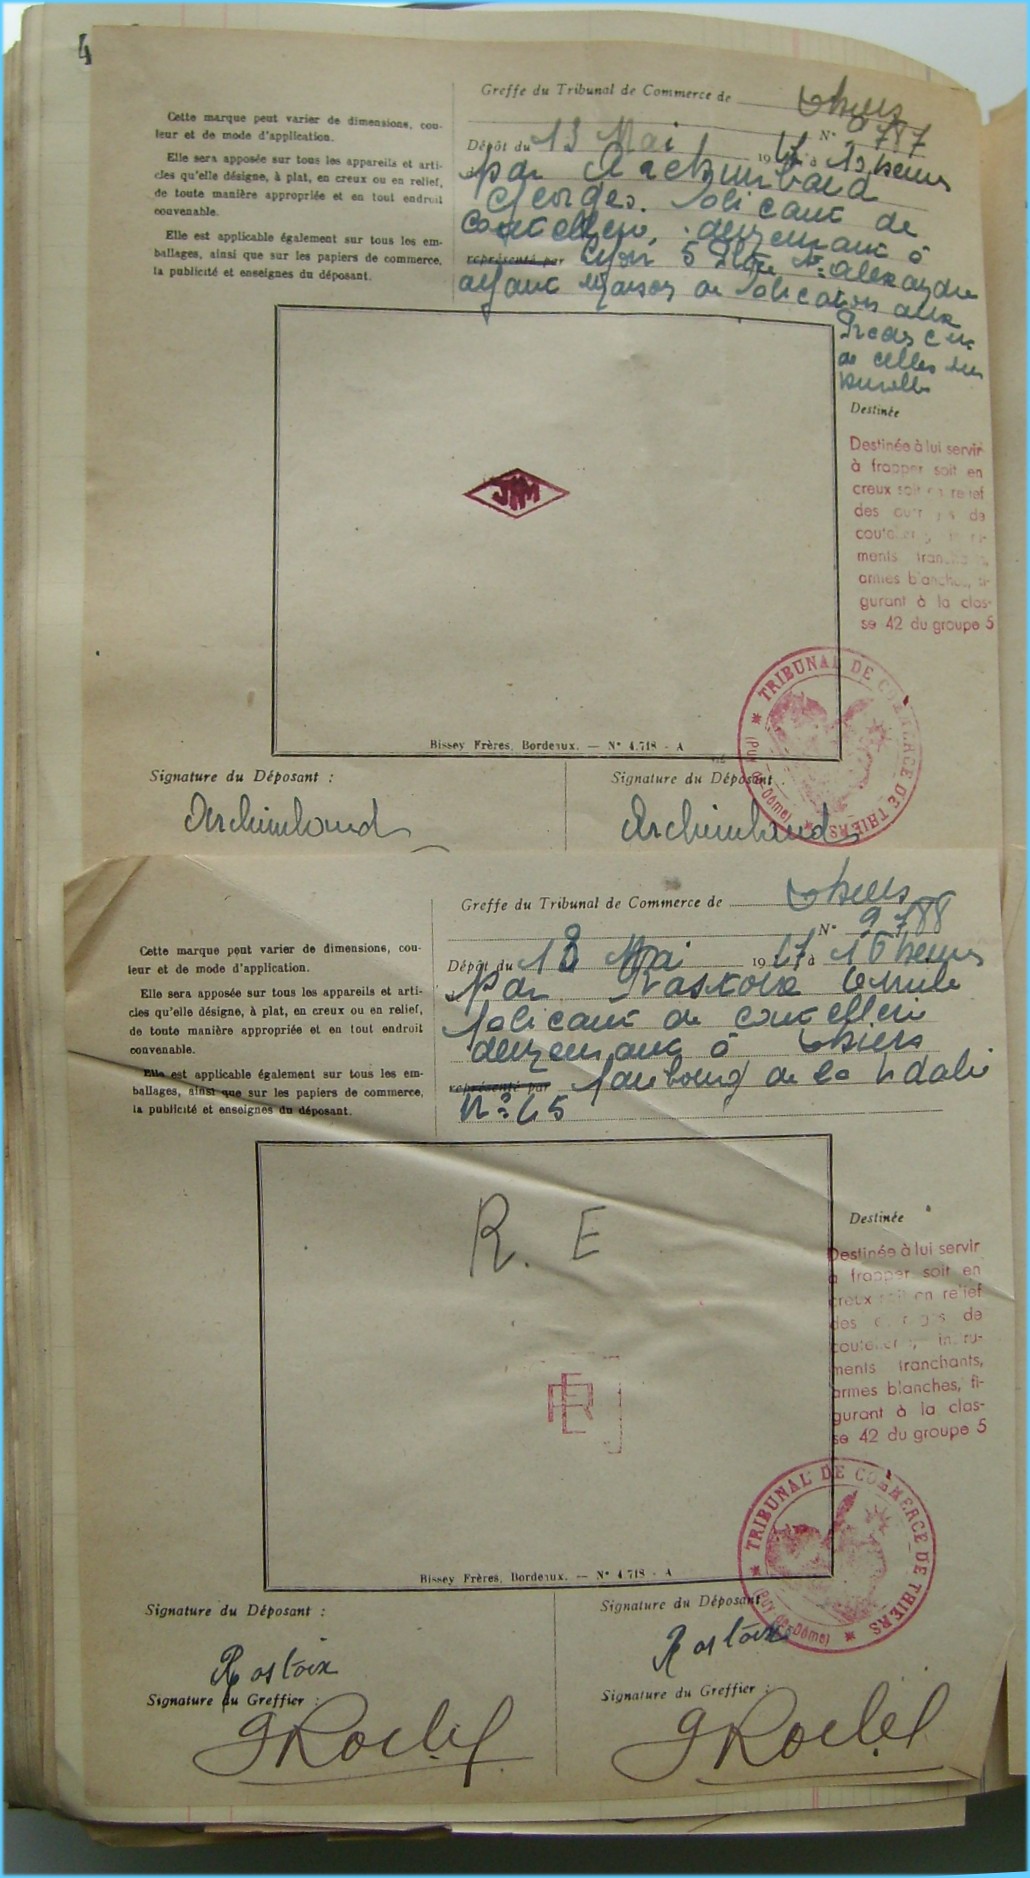 4
Greffe du Tribunal de Commerce de Thiers
N° 9787
Cette marque peut varier de dimensions, cou-
leur et de mode d'application.
Elle sera apposée sur tous les appareils et arti-
cles qu'elle désigne, à plat, en creux ou en relief,
de toute manière appropriée et en tout endroit
convenable.
Elle est applicable également sur tous les em-
ballages, ainsi que sur les papiers de commerce,
la publicité et enseignes du déposant.
Dépôt du 13 Mai 1947 à 15 heures
par Archimbaud
Georges. fabricant de
coutellerie, demeurant à
représenté par Lyon 5 Place St Alexandre
ayant maison de fabrication aux
de celles sur
Durolle
Destinée
Destinée à lui servir
à frapper soit en
creux soit en relief
des outils de
coutellerie, instru-
ments tranchants,
armes blanches, fi-
gurant à la clas-
se 42 du groupe 5
JM
Bissey Frères, Bordeaux. — N° 4.718 - A
TRIBUNAL DE COMMERCE DE THIERS
(Puy-de-Dôme)
Signature du Déposant :
Signature du Déposant :
Archimbaud
Archimbaud
Greffe du Tribunal de Commerce de Thiers
N° 9788
Cette marque peut varier de dimensions, cou-
leur et de mode d'application.
Elle sera apposée sur tous les appareils et arti-
cles qu'elle désigne, à plat, en creux ou en relief,
de toute manière appropriée et en tout endroit
convenable.
Elle est applicable également sur tous les em-
ballages, ainsi que sur les papiers de commerce,
la publicité et enseignes du déposant.
Dépôt du 18 Mai 1947 à 16 heures
par Rastoix
fabricant de coutellerie
demeurant à Thiers
représenté par faubourg de la
N° 45
R. E
RE
Destinée
Destinée à lui servir
à frapper soit en
creux soit en relief
des outils de
coutellerie, instru-
ments tranchants,
armes blanches, fi-
gurant à la clas-
se 42 du groupe 5
Bissey Frères, Bordeaux. — N° 4.718 - A
TRIBUNAL DE COMMERCE DE THIERS
(Puy-de-Dôme)
Signature du Déposant :
Signature du Déposant
Rastoix
Rastoix
Signature du Greffier :
Signature du Greffier :